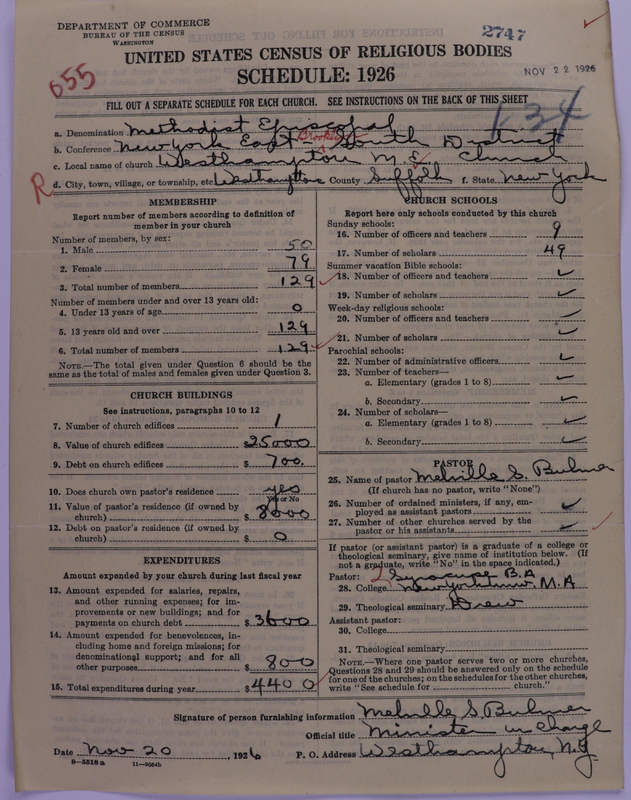 DEPARTMENT OF COMMERCE
BUREAU OF THE CENSUS
WASHINGTON
2747
UNITED STATES CENSUS OF RELIGIOUS BODIES
SCHEDULE: 1926
NOV 22 1926
655
FILL OUT A SEPARATE SCHEDULE FOR EACH CHURCH. SEE INSTRUCTIONS ON THE BACK OF THIS SHEET
134
a. Denomination Methodist Episcopal
b. Conference New York East - Brooklyn South District
c. Local name of church Westhampton M.E. Church
R d. City, town, village, or township, etc. Westhampton County Suffolk f. State New York
MEMBERSHIP
Report number of members according to definition of member in your church
Number of members, by sex:
1. Male 50
2. Female 79
3. Total number of members 129
Number of members under and over 13 years old:
4. Under 13 years of age 0
5. 13 years old and over 129
6. Total number of members 129
NOTE.—The total given under Question 6 should be
same as the total of males and females given under Question 3.
CHURCH BUILDINGS
See instructions, paragraphs 10 to 12
7. Number of church edifices 1
8. Value of church edifices $25000
9. Debt on church edifices $700.
10. Does church own pastor's residence yes
Yes or No
11. Value of pastor's residence (if owned by
church) $8000
12. Debt on pastor's residence (if owned by
church) $0
EXPENDITURES
Amount expended by your church during last fiscal year
13. Amount expended for salaries, repairs,
and other running expenses; for im-
provements or new buildings; and for
payments on church debt $3600
14. Amount expended for benevolences, in-
cluding home and foreign missions; for
denominational support; and for all
other purposes $800
15. Total expenditures during year $4400
CHURCH SCHOOLS
Report here only schools conducted by this church
Sunday schools:
16. Number of officers and teachers 9
17. Number of scholars 49
Summer vacation Bible schools:
18. Number of officers and teachers ✓
19. Number of scholars ✓
Week-day religious schools:
20. Number of officers and teachers ✓
21. Number of scholars ✓
Parochial schools:
22. Number of administrative officers ✓
23. Number of teachers—
a. Elementary (grades 1 to 8) ✓
b. Secondary ✓
24. Number of scholars—
a. Elementary (grades 1 to 8) ✓
b. Secondary ✓
PASTOR
25. Name of pastor Melville S. Bulmer
(If church has no pastor, write "None")
26. Number of ordained ministers, if any, em-
ployed as assistant pastors ✓
27. Number of other churches served by the
pastor or his assistants ✓
If pastor (or assistant pastor) is a graduate of a college or
theological seminary, give name of institution below. (If
not a graduate, write "No" in the space indicated.)
Pastor: Syracuse B.A
28. College New York Univ M.A
29. Theological seminary Drew
Assistant pastor:
30. College
31. Theological seminary
NOTE.—Where one pastor serves two or more churches,
Questions 28 and 29 should be answered only on the schedule
for one of the churches; on the schedules for the other churches,
write "See schedule for church."
Signature of person furnishing information Melville S. Bulmer
Official title Minister in Charge
Date Nov 20, 1926 P. O. Address Westhampton, N.Y.
8—5518a 11—9054b